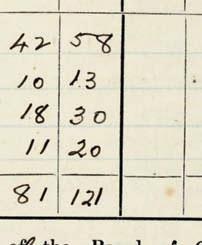 42 58
10 13
18 30
11 20
81 121
off the